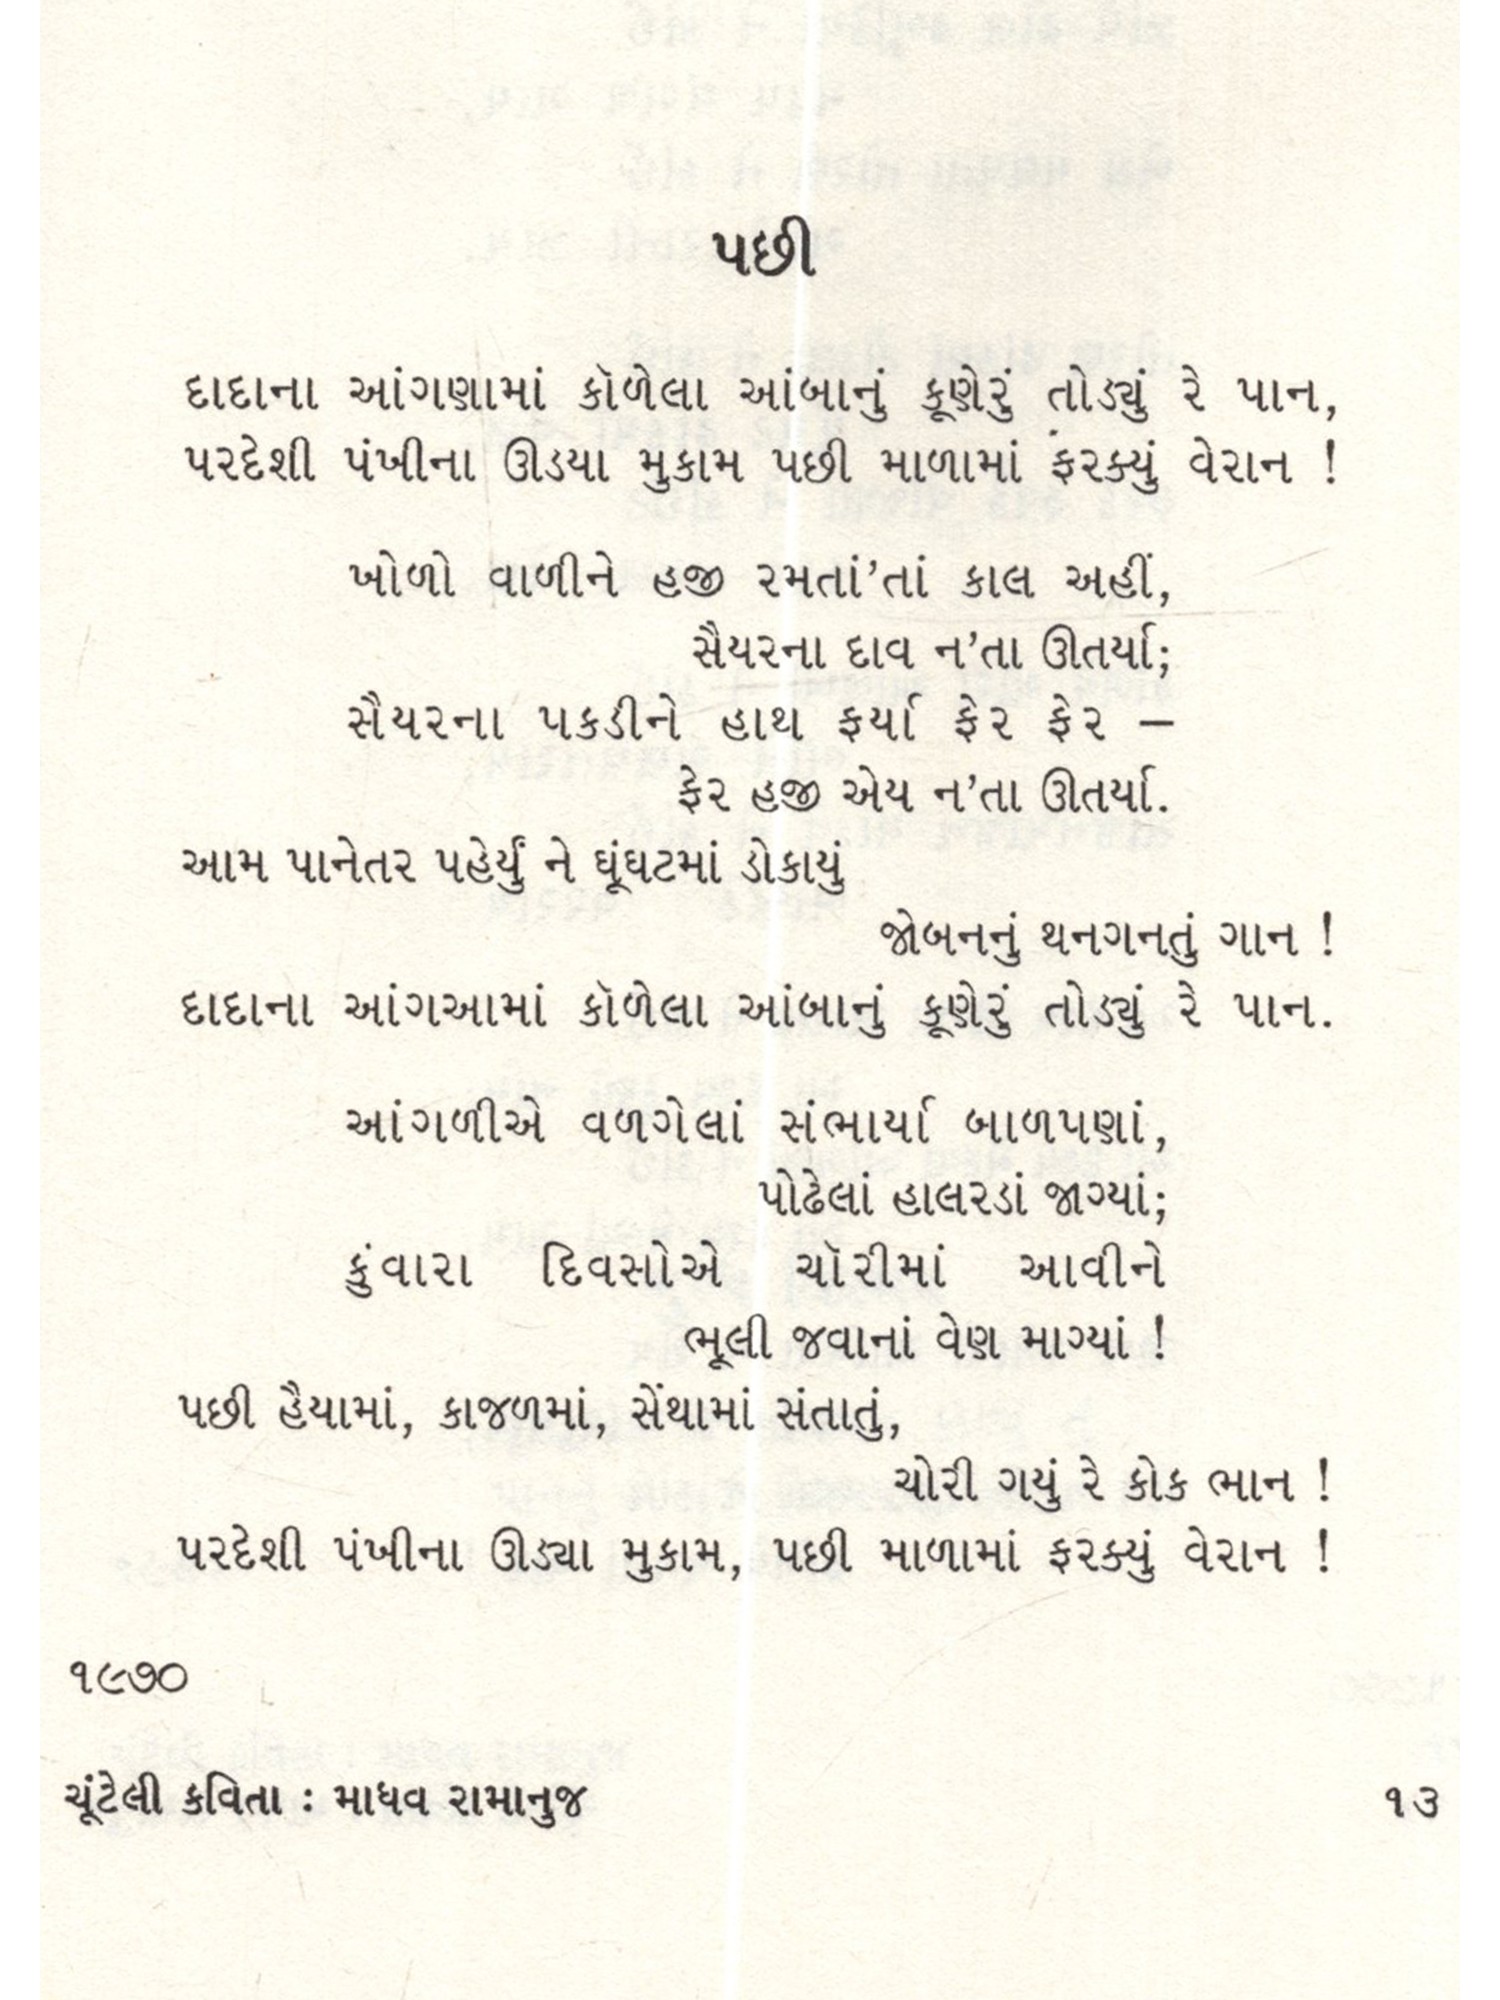 પછી
દાદાના આંગણામાં કૉળેલા આંબાનું કૂણેરું તોડ્યું રે પાન,
પરદેશી પંખીના ઊડયા મુકામ પછી માળામાં ફરક્યું વેરાન !
ખોળો વાળીને હજી રમતાં’તાં કાલ અહીં,
સૈયરના દાવ ન’તા ઊતર્યા;
સૈયરના પકડીને હાથ ફર્યા ફેર ફેર –
ફેર હજી એય ન’તા ઊતર્યા.
આમ પાનેતર પહેર્યું ને ઘૂંઘટમાં ડોકાયું
જોબનનું થનગનતું ગાન !
દાદાના આંગઆમાં કૉળેલા આંબાનું કૂણેરું તોડ્યું રે પાન.
આંગળીએ વળગેલાં સંભાર્યા બાળપણાં,
પોઢેલાં હાલરડાં જાગ્યાં;
કુંવારા દિવસોએ ચૉરીમાં આવીને
ભૂલી જવાનાં વેણ માગ્યાં !
પછી હૈયામાં, કાજળમાં, સેંથામાં સંતાતું,
ચોરી ગયું રે કોક ભાન !
પરદેશી પંખીના ઊડ્યા મુકામ, પછી માળામાં ફરક્યું વેરાન !
૧૯૭૦
ચૂંટેલી કવિતા : માધવ રામાનુજ ૧૩